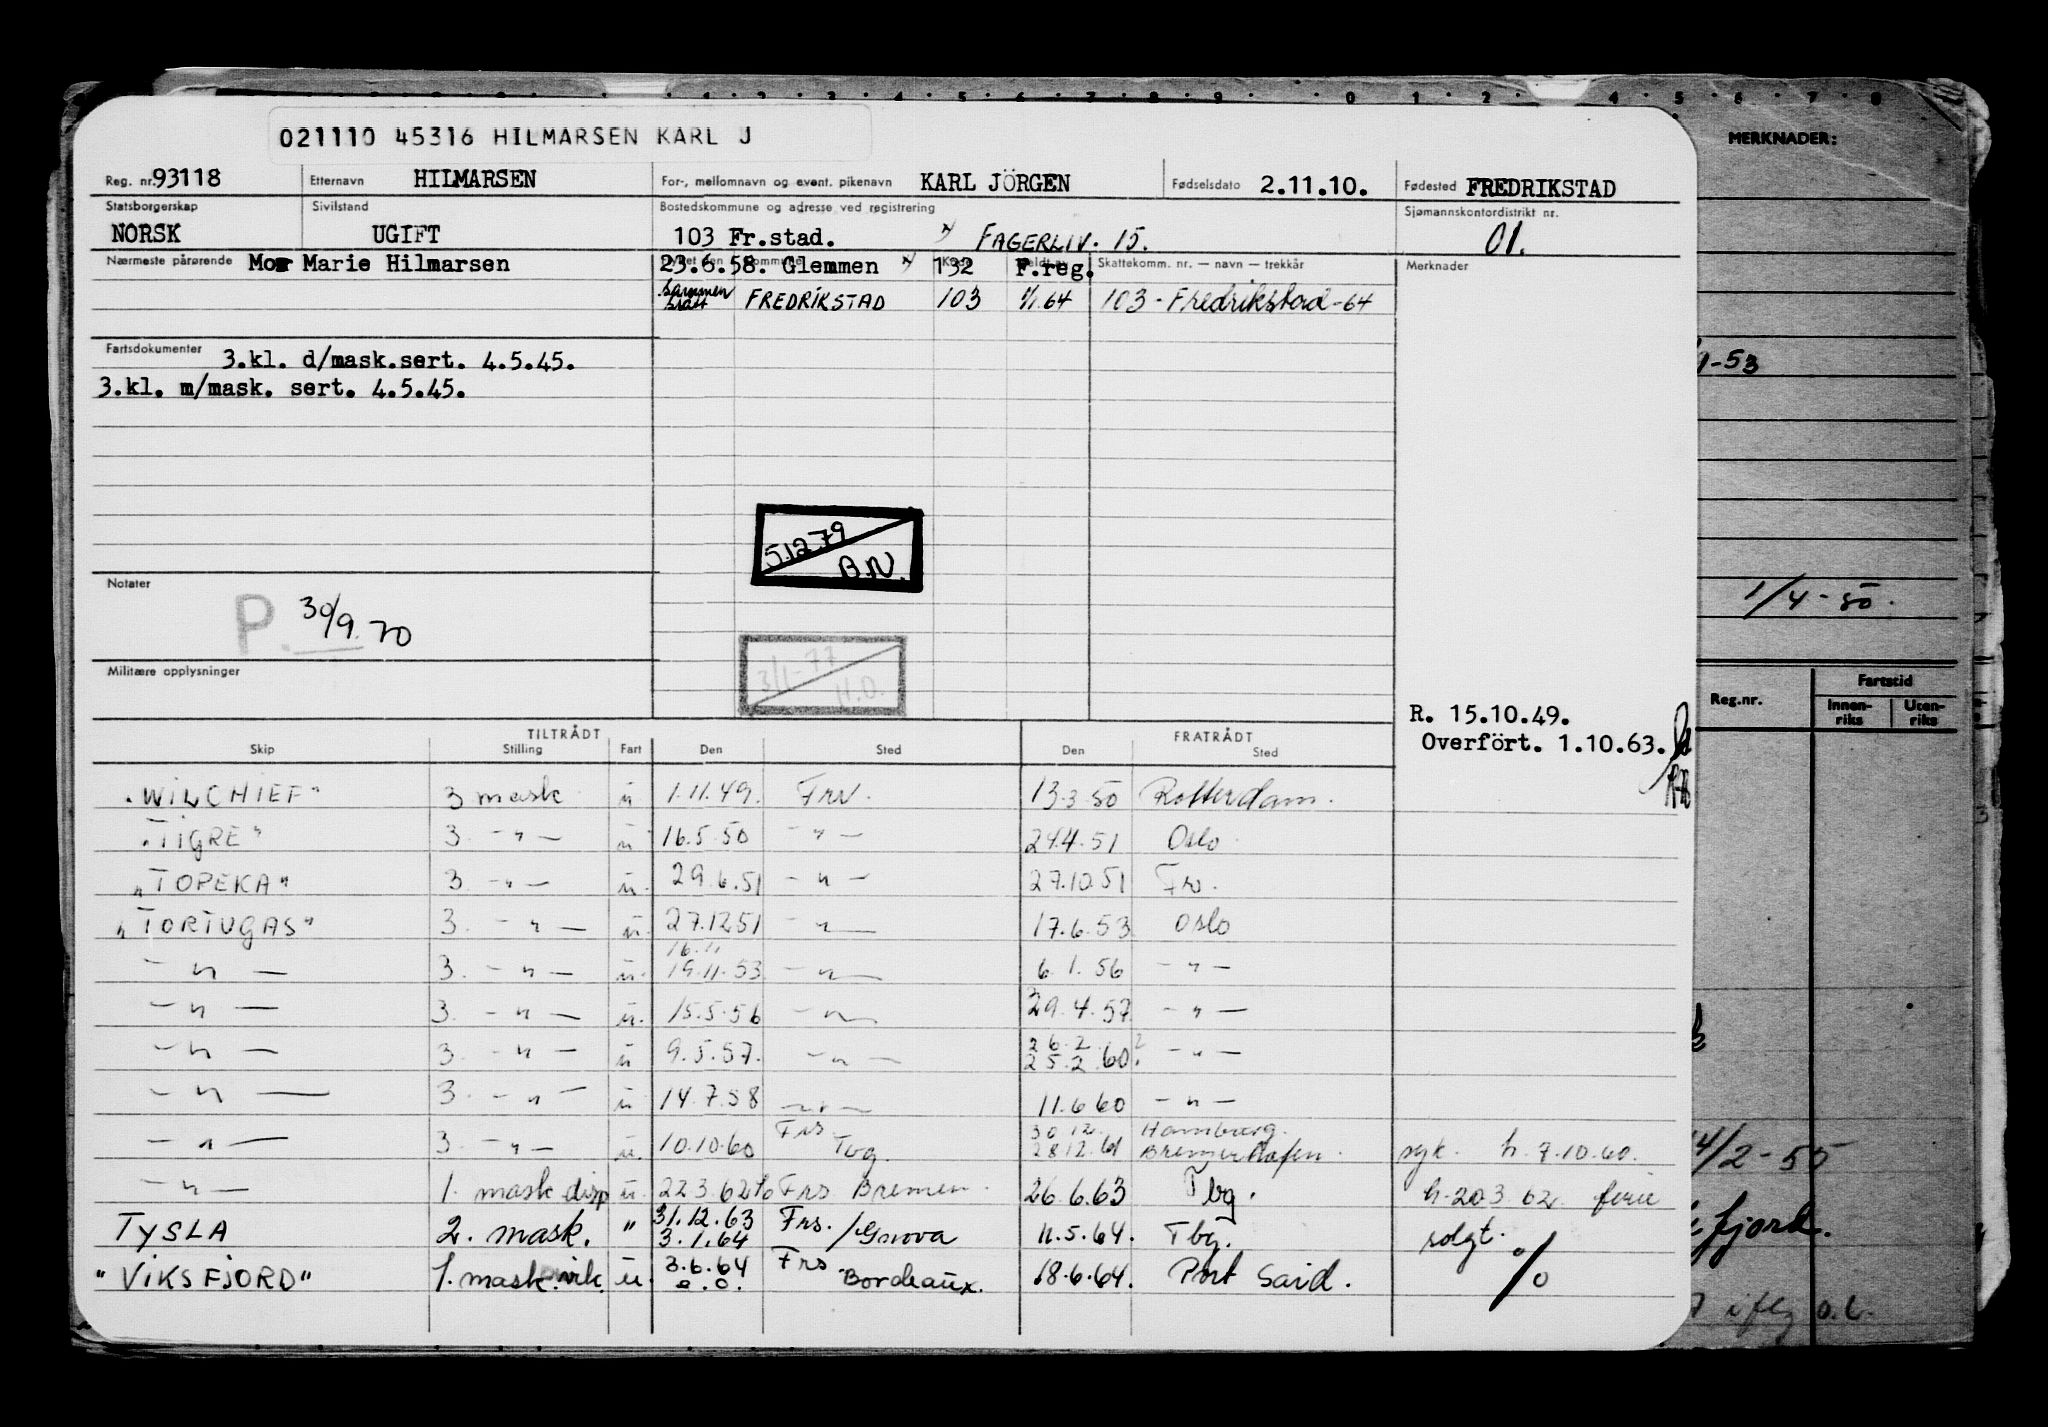 021110 45316 HILMARSEN KARL J
MERKNADER:
Reg. nr. 93118 Etternavn HILMARSEN For-, mellomnavn og event. pikenavn KARL JÖRGEN Fødselsdato 2.11.10. Fødested FREDRIKSTAD
Statsborgerskap Sivilstand Bostedskommune og adresse ved registrering Sjømannskontordistrikt nr.
NORSK UGIFT 103 Fr.stad. FAGERLIV. 15. 01.
Nærmeste pårørende Mor Marie Hilmarsen 23.6.58. Glemmen 132 F.reg. Skattekomm. nr. — navn — trekkår Merknader
sammen FREDRIKSTAD 103 1/1.64 103 - Fredrikstad-64
Fartsdokumenter 3.kl. d/mask.sert. 4.5.45.
3.kl. m/mask. sert. 4.5.45.
-53
5.12.79
B.N.
Notater
P. 30/9.70
1/4-50.
Militære opplysninger
3/1-77
H.O.
Reg.nr. Fartstid
Innenriks Utenriks
R. 15.10.49.
Overfört. 1.10.63.
TILTRÅDT FRATRÅDT
Skip Stilling Fart Den Sted Den Sted
"WILCHIEF" 3 mask u 1.11.49. Frv. 13.3.50 Rotterdam.
"TIGRE" 3. -"- u 16.5.50 -"- 24.4.51 Oslo.
"TOPEKA" 3 -"- u. 29.6.51 -"- 27.10.51 Frs.
"TORTUGAS" 3. -"- u. 27.12.51 -"- 17.6.53 Oslo
16.11
-"- 3. -"- u. 19.11.53 -"- 6.1.56 -"-
-"- 3. -"- u. 15.5.56 -"- 29.4.57 -"-
-"- 3. -"- u 9.5.57. -"- 26.2 25.2.60. -"-
-"- 3. -"- u 14.7.58 -"- 11.6.60 -"-
-"- 3. -"- u. 10.10.60 Frs. Tbg. 30.12. 28.12.61 Hamburg. Bremerhafen. syk. h. 7.10.60.
-"- 1. mask disp u. 22.3.62 Frs Bremen. 26.6.63 Tbg. h. 20.3.62 ferie
TYSLA 2. mask. " 31.12.63 3.1.64 Frs. /Genova 11.5.64. Tbg. solgt.
"VIKSFJORD" 1. mask. u. 3.6.64 Frs Bordeaux. 18.6.64. Port Said. %
14/2-55
fjord.